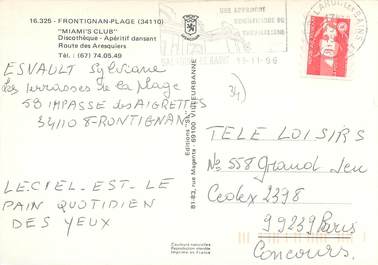 16.325 - FRONTIGNAN-PLAGE (34110)
"MIAMI'S CLUB"
Discothèque - Apéritif dansant
Route des Aresquiers
Tél. : (67) 74.05.49
ESVAULT Sylviane
les terrasses de la plage
58 IMPASSE des AIGRETTES
34110 8-FRONTIGNAN
LE CIEL-EST-LE
PAIN QUOTIDIEN
DES YEUX
Couleurs naturelles
Reproduction interdite
Imprimé en France
81-83, rue Magenta - 69100 VILLEURBANNE
UNE APPROCHE
DU THERMALISME
19-11-96
34
TELE LOISIRS
No 558 Grand Jeu
Cedex 2398
99239 Paris
Concours.